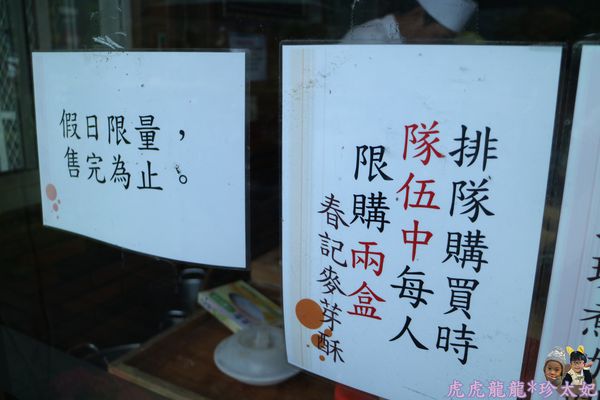 假日限量，
售完為止。
排隊購買時
隊伍中每人
限購兩盒
春記麥芽酥
虎虎龍龍*珍太妃